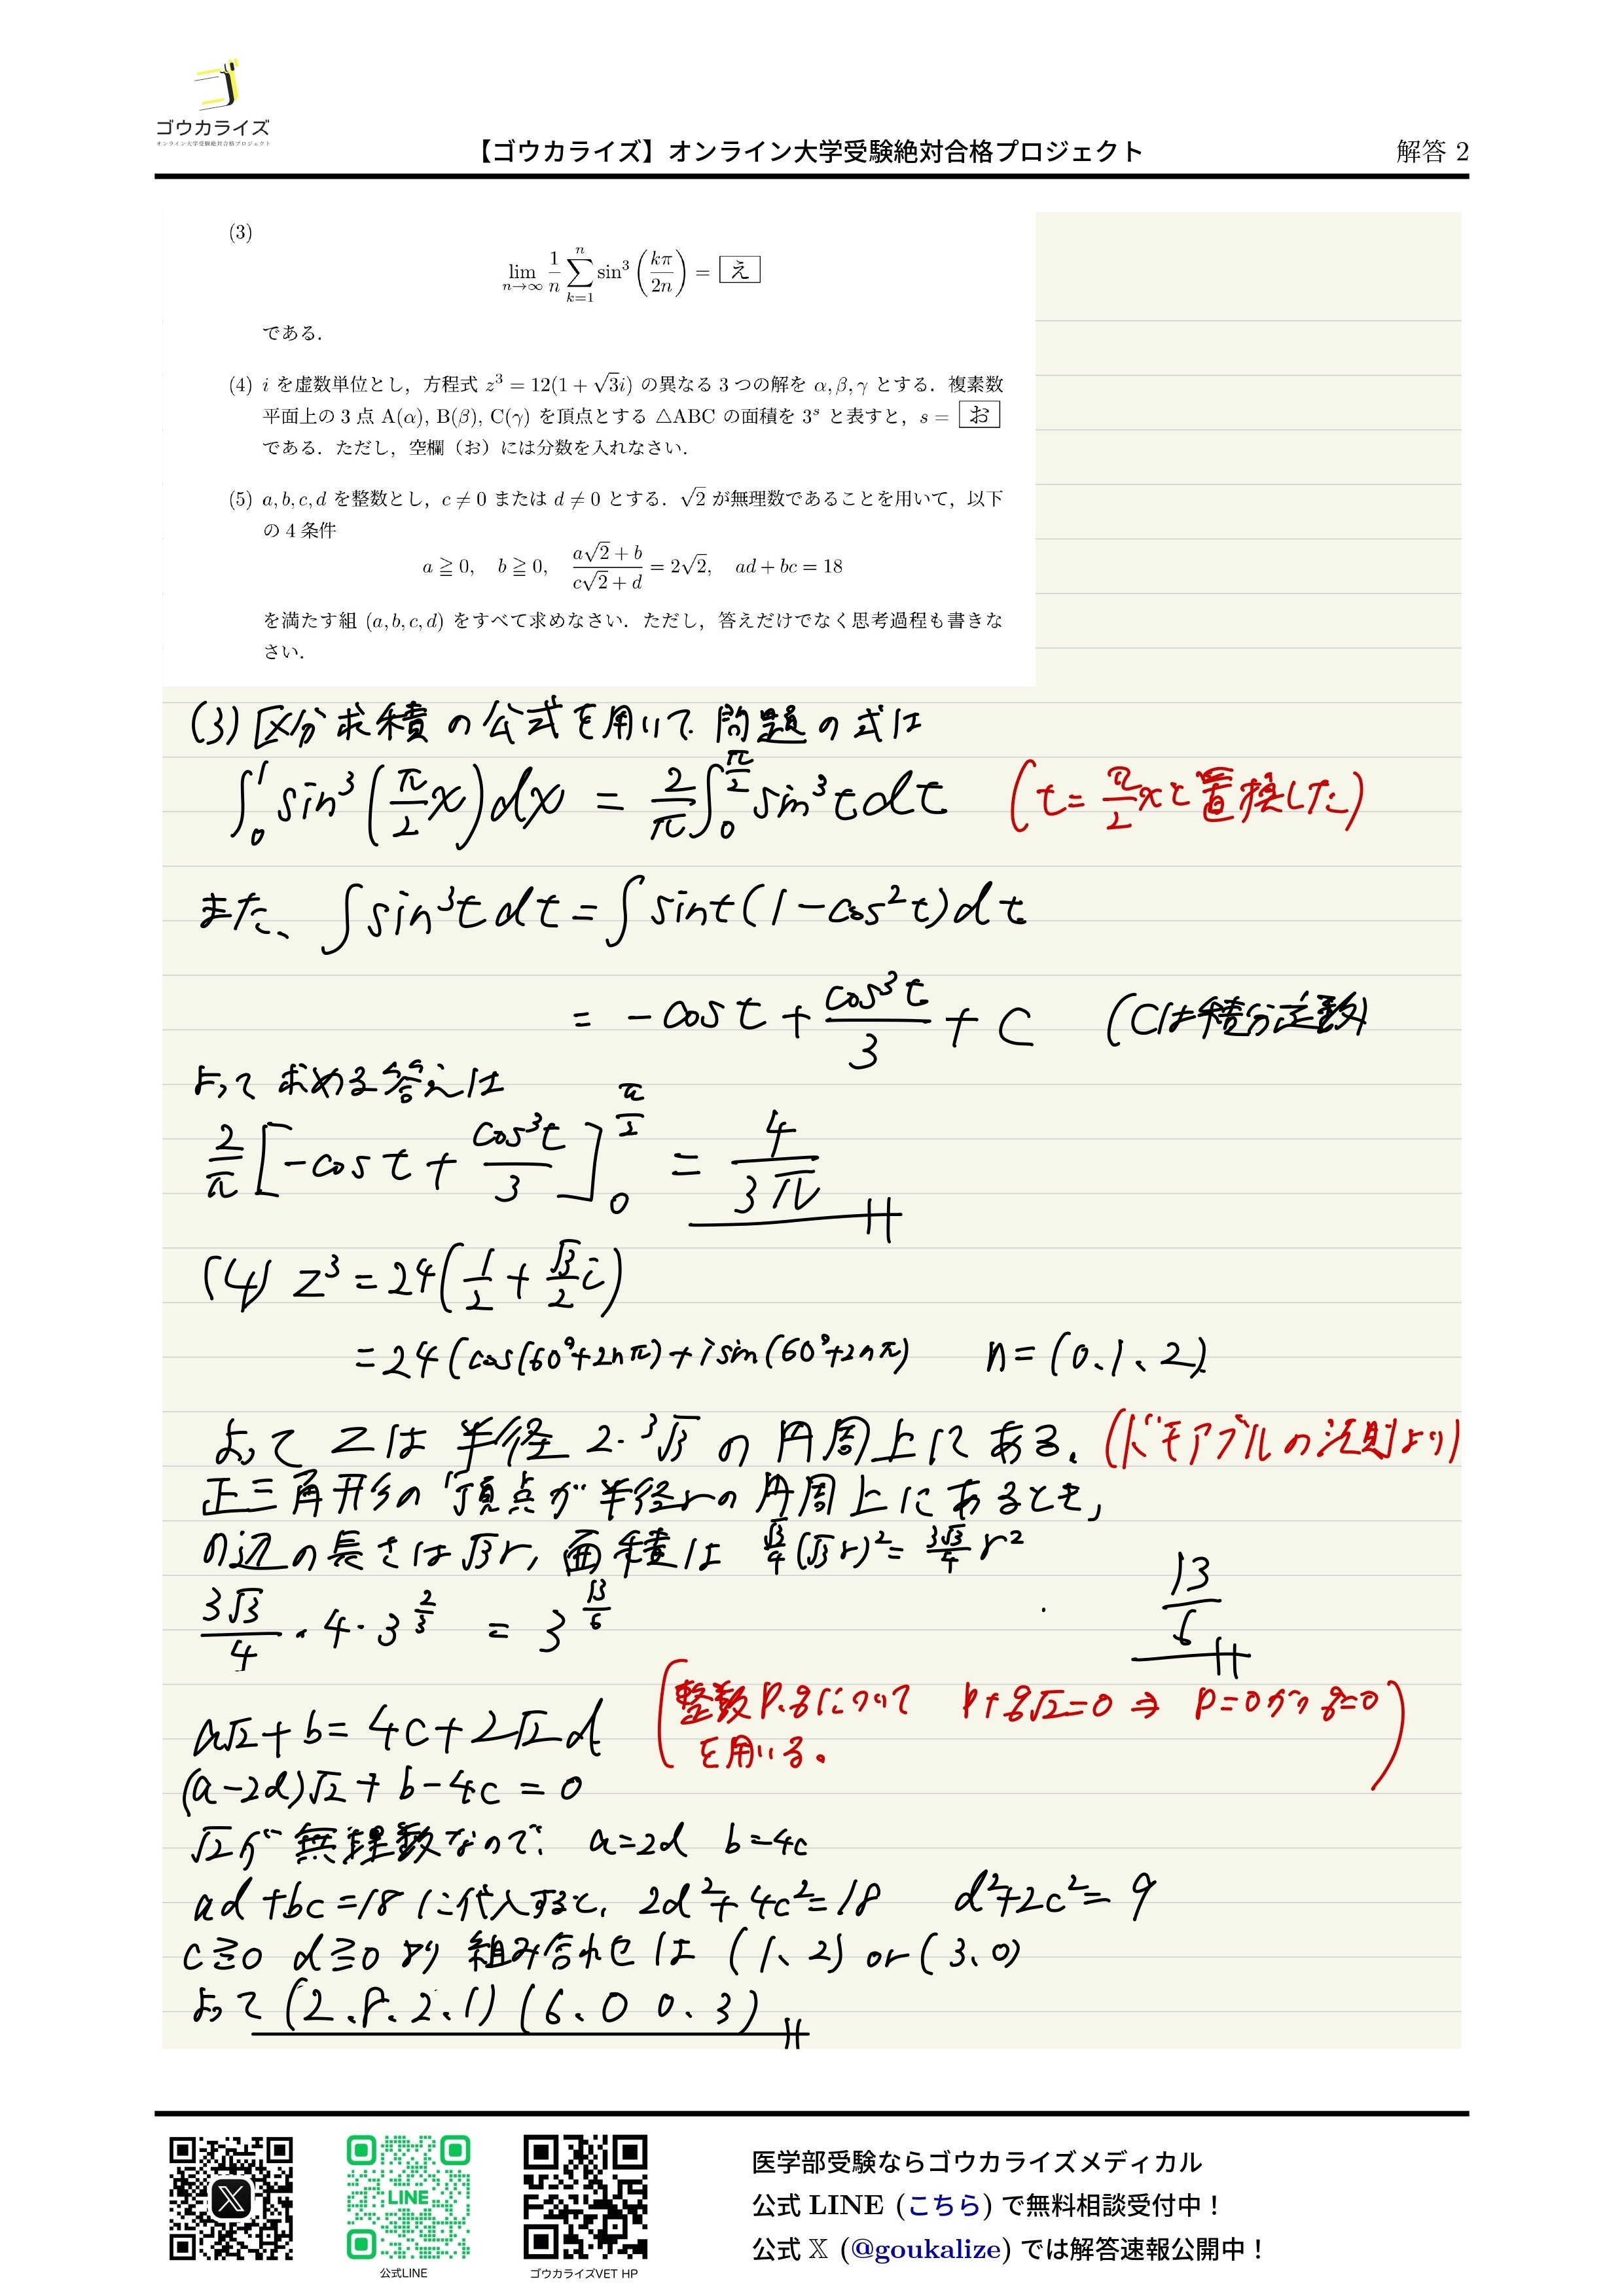 ゴウカライズ
オンライン大学受験絶対合格プロジェクト
【ゴウカライズ】オンライン大学受験絶対合格プロジェクト
解答 2
(3)
lim_{n→∞} 1/n ∑_{k=1}^{n} sin³(kπ/2n) = え
である.
(4) i を虚数単位とし，方程式 z³ = 12(1 + √3i) の異なる 3 つの解を α, β, γ とする．複素数
平面上の 3 点 A(α), B(β), C(γ) を頂点とする △ABC の面積を 3ˢ と表すと，s = お
である．ただし，空欄（お）には分数を入れなさい．
(5) a, b, c, d を整数とし，c ≠ 0 または d ≠ 0 とする．√2 が無理数であることを用いて，以下
の 4 条件
a ≧ 0, b ≧ 0, (a√2 + b)/(c√2 + d) = 2√2, ad + bc = 18
を満たす組 (a, b, c, d) をすべて求めなさい．ただし，答えだけでなく思考過程も書きな
さい．
(3) 区分求積の公式を用いて 問題の式は
∫₀¹ sin³(π/2 x)dx = 2/π ∫₀^{π/2} sin³t dt (t = π/2 x と置換した)
また、∫sin³t dt = ∫sint(1−cos²t)dt
= −cos t + cos³t/3 + C (Cは積分定数)
よって求める答えは
2/π [−cos t + cos³t/3]₀^{π/2} = 4/3π
(4) z³ = 24(1/2 + √3/2 i)
= 24(cos(60°+2nπ)+isin(60°+2nπ) n = (0、1、2)
よって zは 半径 2·³√3 の 円周上にある。(ドモアブルの法則より)
正三角形の頂点が半径rの円周上にあるとき,
の辺の長さは √3r, 面積は √3/4 (√3r)² = 3√3/4 r²
3√3/4 · 4 · 3^{2/3} = 3^{13/6} 13/6
(整数P、qについて P+q√2=0 ⇒ P=0かつq=0
を用いる。)
a√2 + b = 4c + 2√2d
(a−2d)√2 + b−4c = 0
√2が無理数なので、 a=2d b=4c
ad+bc=18に代入すると、2d²+4c²=18 d²+2c²=9
c≧0 d≧0より 組み合わせは (1、2) or (3、0)
よって (2.8.2.1) (6.0 0.3)
LINE
公式LINE
ゴウカライズVET HP
医学部受験ならゴウカライズメディカル
公式 LINE (こちら) で無料相談受付中！
公式 𝕏 (@goukalize) では解答速報公開中！